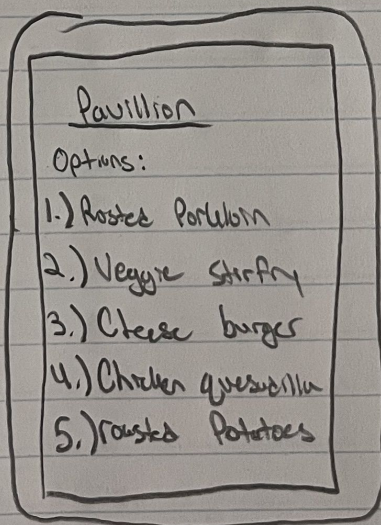 Pavillion
Options:
1.) Rosted Porkloin
2.) Veggie Stirfry
3.) Cheese burger
4.) Chicken quesadilla
5.) rousted Potatoes